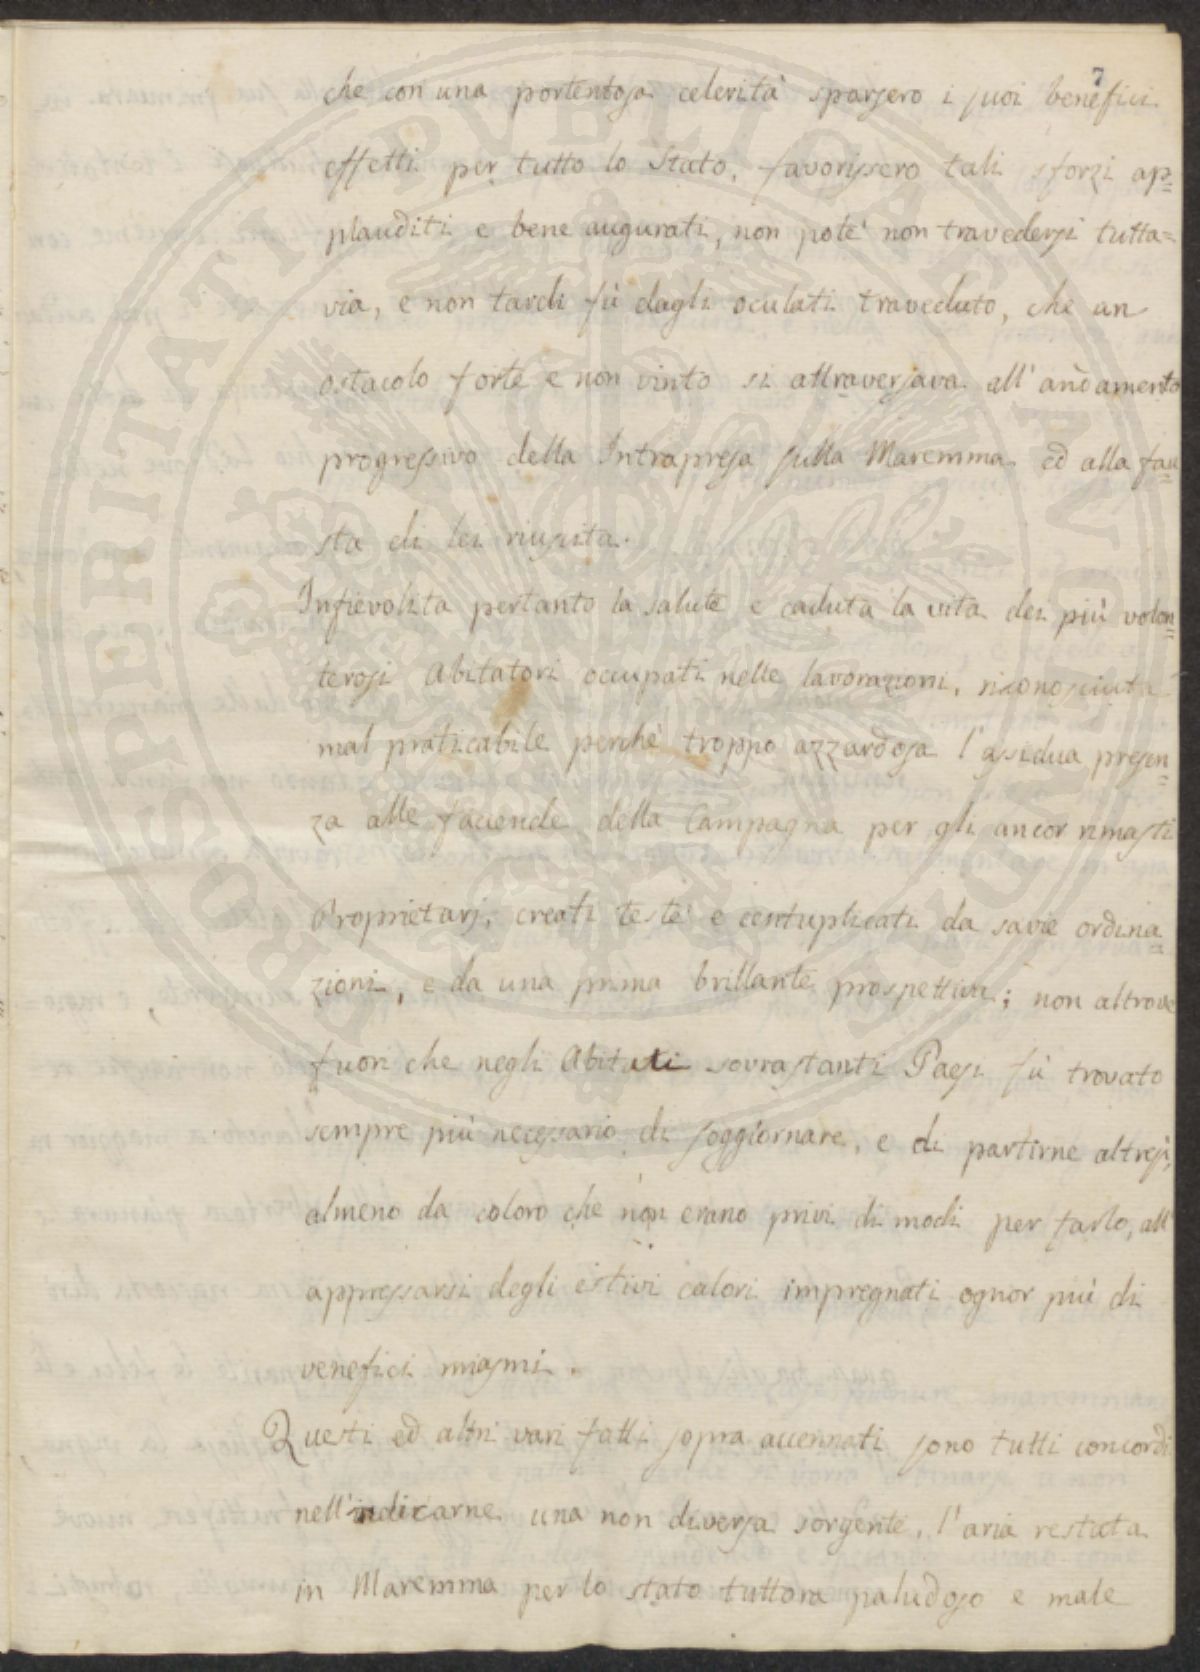 7
che con una portentosa celerità sparsero i suoi benefici
effetti per tutto lo Stato, favorissero tali sforzi ap=
plauditi e bene augurati, non potè non travedersi tutta=
via, e non tardi fù dagli oculati traveduto, che un
ostacolo forte e non vinto si attraversava all'andamento
progressivo della Intrapresa sulla Maremma, ed alla fau=
sta di lei riuscita.
Infievolita pertanto la salute e caduta la vita dei più volon=
terosi Abitatori occupati nelle lavorazioni, riconosciuta
mal praticabile perchè troppo azzardosa l'assidua presen=
za alle faccende della Campagna per gli ancor rimasti
Proprietarj, creati testè e centuplicati da savie ordina=
zioni, e da una prima brillante prospettiva; non altrove
fuori che negli Abitati sovrastanti Paesi fù trovato
sempre più necessario di soggiornare, e di partirne altresì,
almeno da coloro che non erano privi di modi per farlo, all'
appressarsi degli estivi calori impregnati ognor più di
venefici miasmi.
Questi ed altri vari fatti sopra accennati sono tutti concordi
nell'indicarne una non diversa sorgente, l'aria restata
in Maremma per lo stato tuttora paludoso e male
PROSPERITATI PVBLICAE AVGENDAE